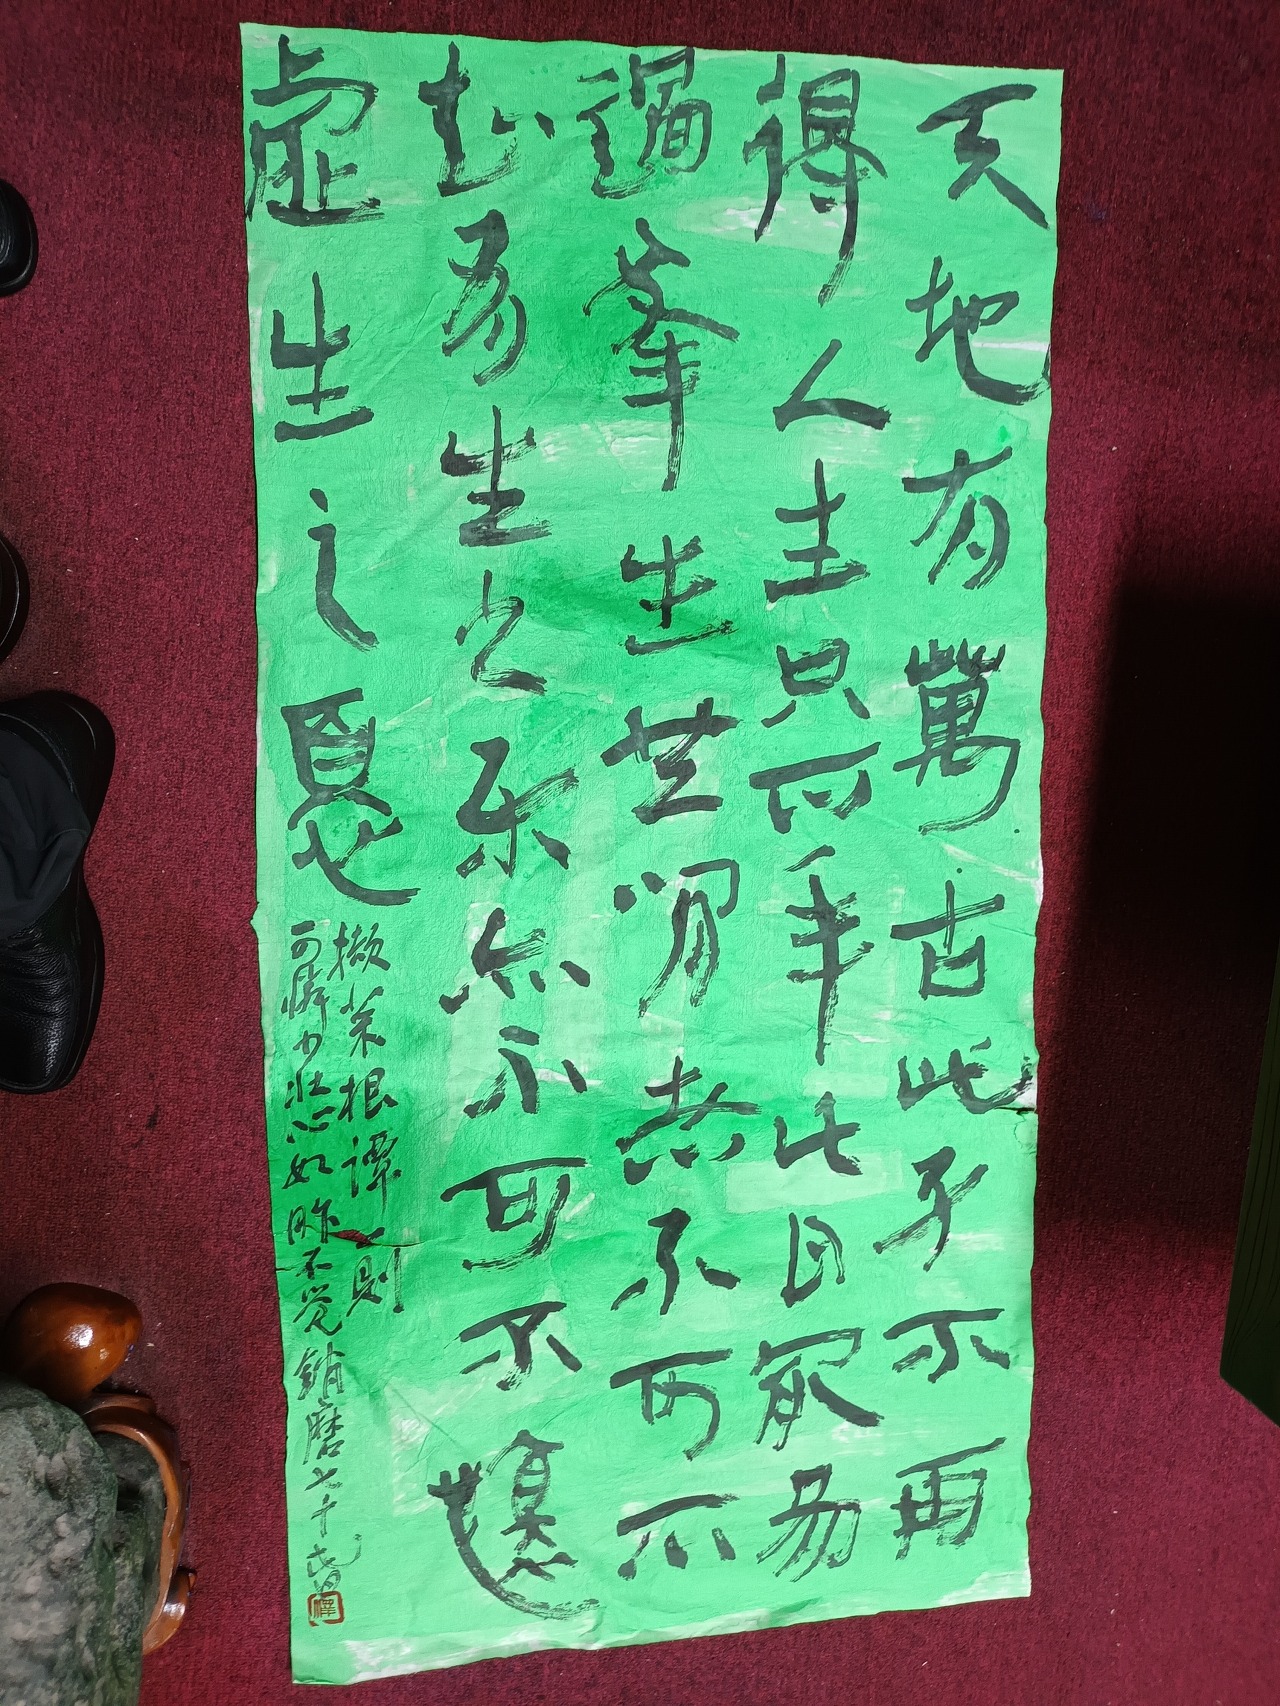 天地有萬古此身不再
得人生只百年此日最易
過幸生其間者不可不
知有生之乐亦不可不懷
虛生之憂
擷菜根譚一則
可憐少壮心如昨不觉銷磨七十